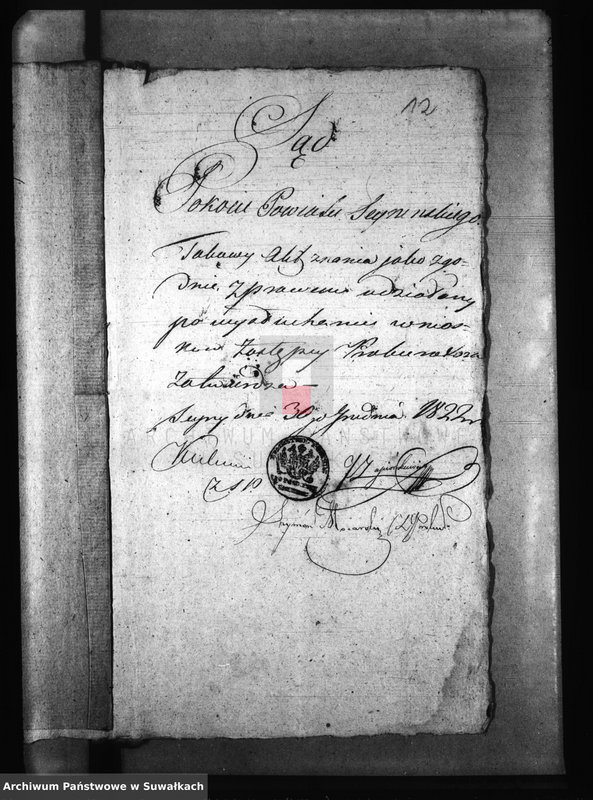 12
Sąd
Pokoiu Powiatu Seynenskiego.
Takowy Akt znania jako zgo-
dnie z prawem udziałany
po wysłuchaniu wnios-
ku Zastępcy Prokuratora
Zatwierdza —
Seyny dnia 30 Grudnia 1822 r
Szymon
Archiwum Państwowe w Suwałkach